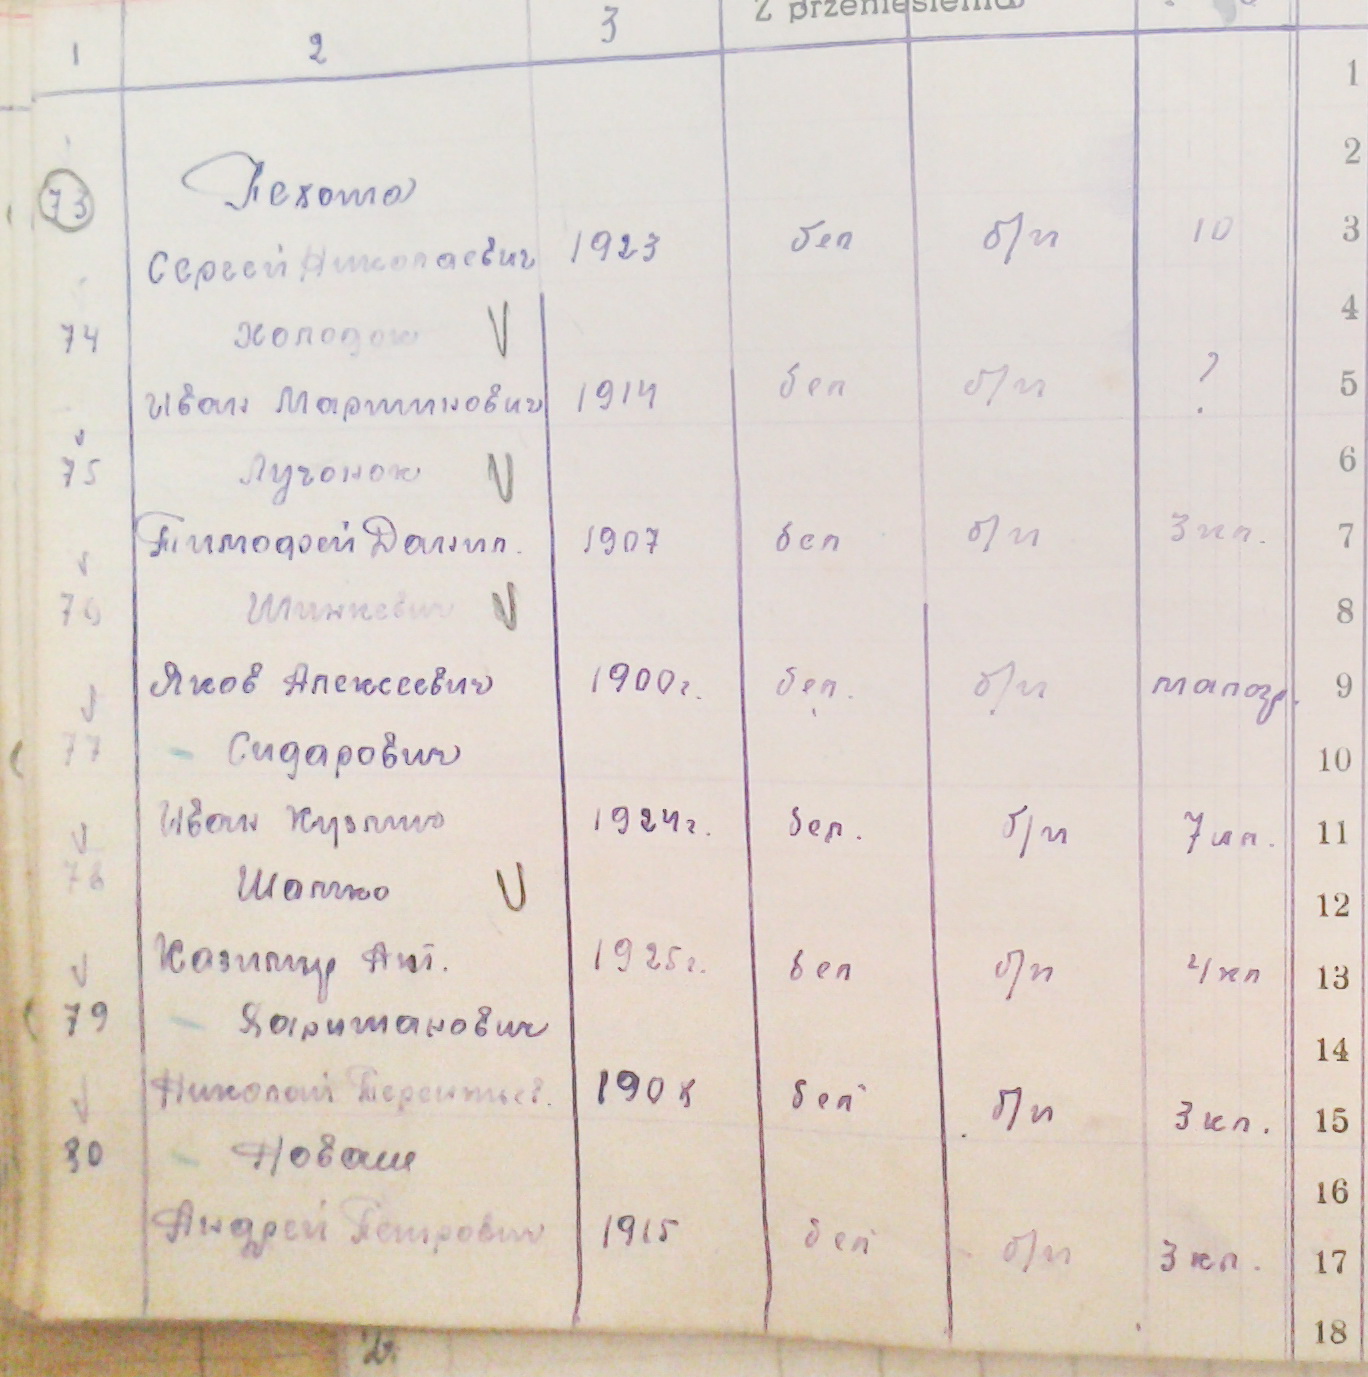 Z przeniesienia
1 2 3
1
2
73 Пехота
Сергей Николаевич 1923 бел б/п 10 3
4
74 Холодок V
Иван Мартинович 1914 бел б/п ? 5
6
75 Лучонок V
Тимофей Данил. 1907 бел б/п 3 кл. 7
76 Шинкевич V 8
Яков Алексеевич 1900г. бел. б/п малогр. 9
77 - Сидарович 10
Иван Кузьмич 1924г. бел. б/п 7 кл. 11
78 Шапко V 12
Казимир Ант. 1925г. бел б/п 4 кл 13
79 - 14
Николай Терентьев. 1908 бел б/п 3 кл. 15
80 - Новаш 16
Андрей Петрович 1915 бел б/п 3 кл. 17
18